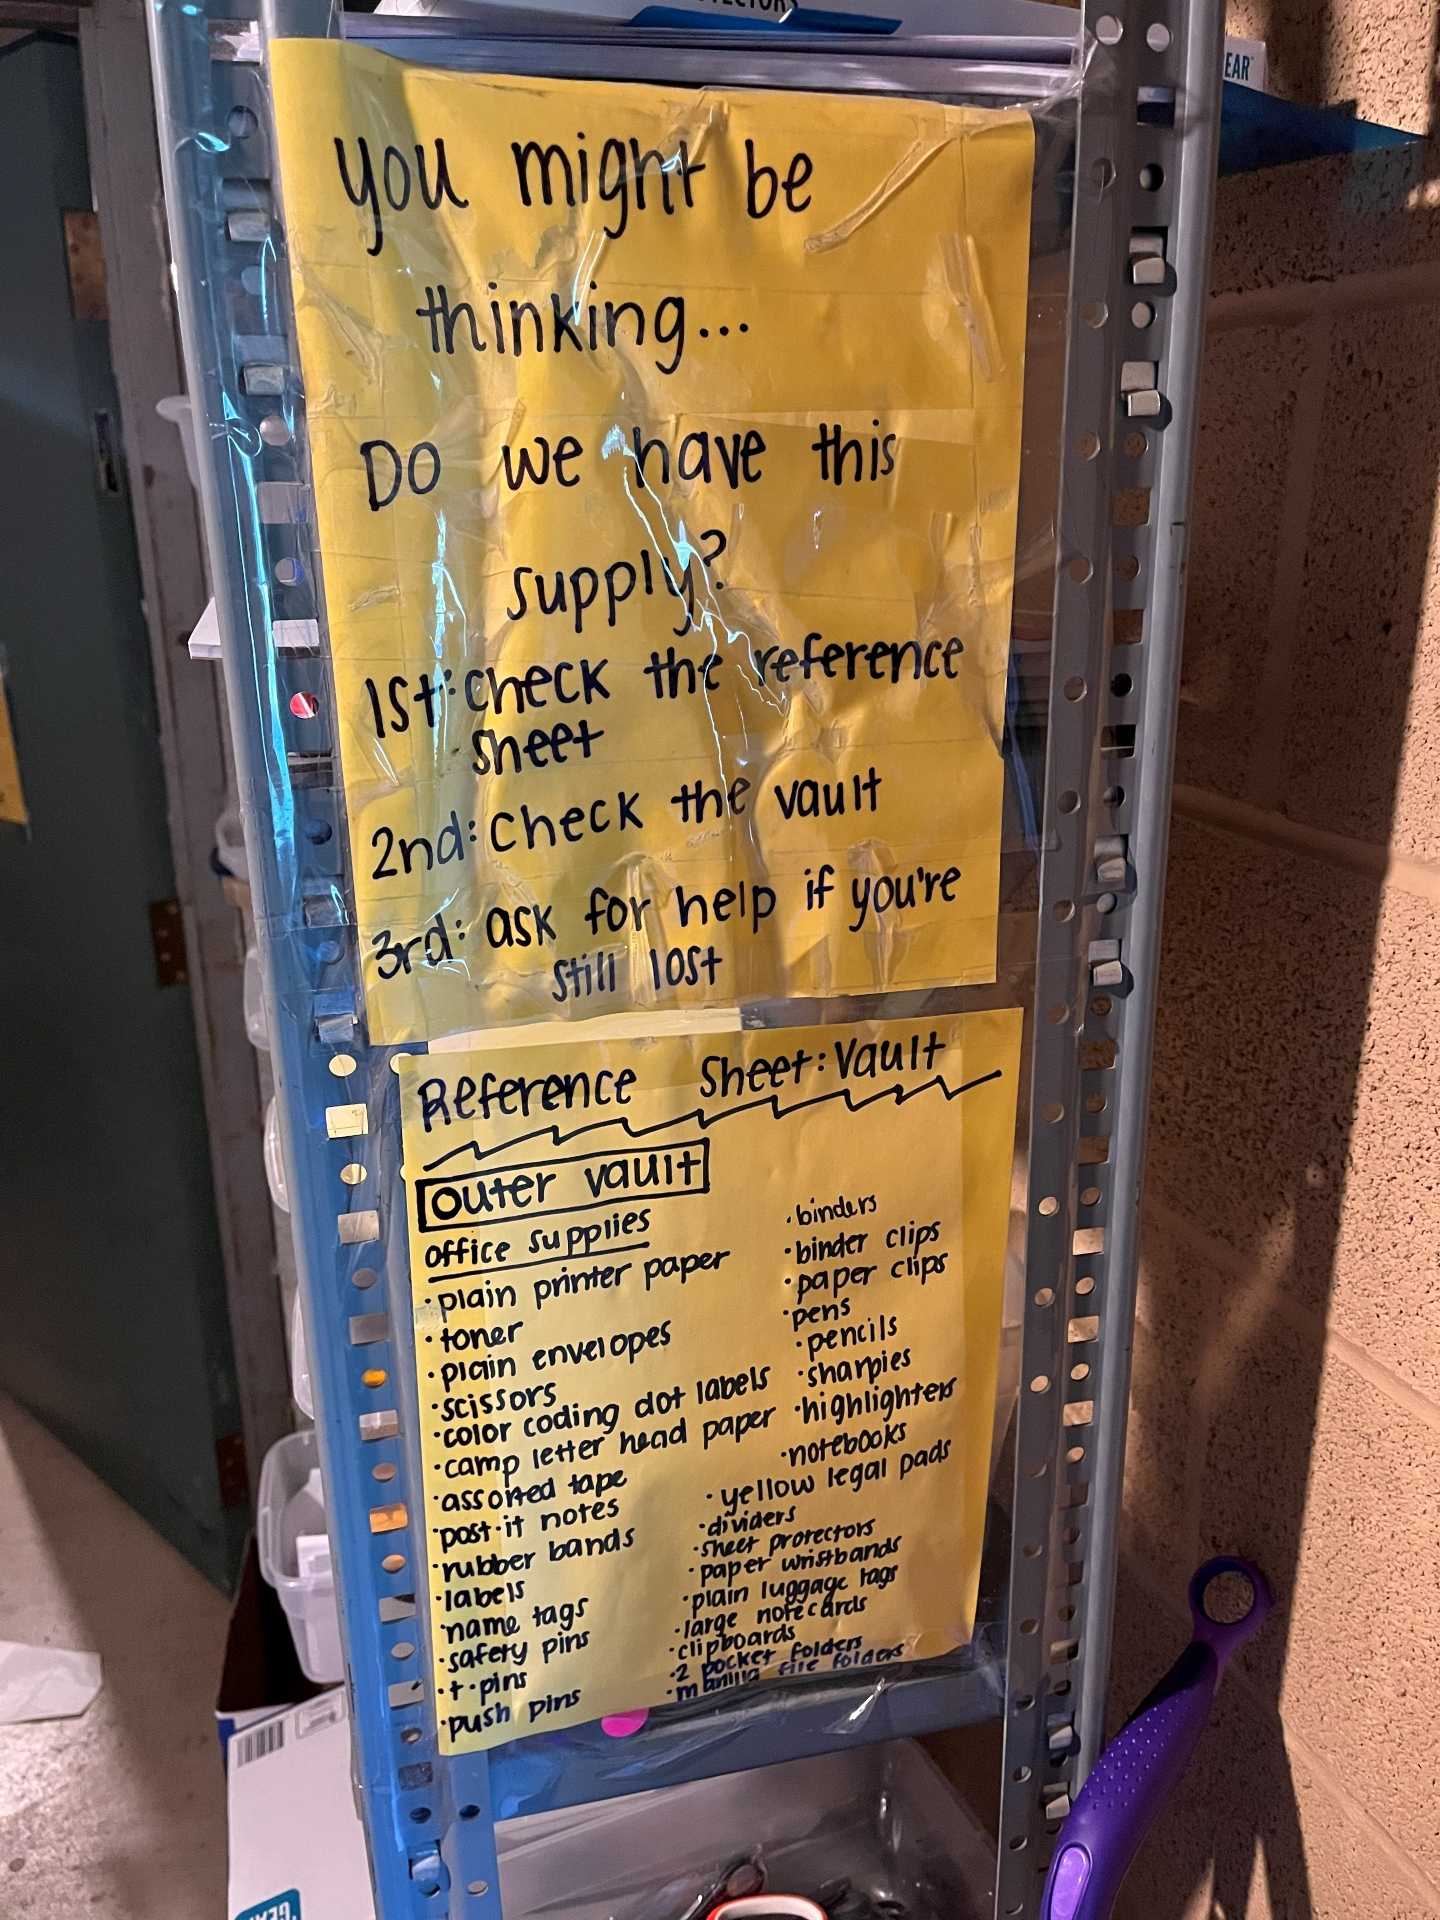 EAR
you might be
thinking...
Do we have this
supply?
1st: check the reference
sheet
2nd: check the vault
3rd: ask for help if you're
still lost
Reference Sheet: Vault
outer vault
office supplies
·plain printer paper
·toner
·plain envelopes
·scissors
·color coding dot labels
·camp letter head paper
·assorted tape
·post-it notes
·rubber bands
·labels
·name tags
·safety pins
·t-pins
·push pins
·binders
·binder clips
·paper clips
·pens
·pencils
·sharpies
·highlighters
·notebooks
·yellow legal pads
·dividers
·sheet protectors
·paper wristbands
·plain luggage tags
·large notecards
·clipboards
·2 pocket folders
·manilla file folders